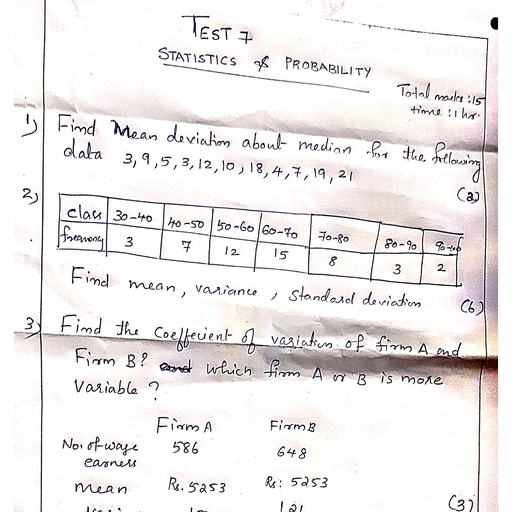 TEST 7
STATISTICS & PROBABILITY
Total marks : 15
time : 1 hr.
1) Find Mean deviation about median for the following
data 3, 9, 5, 3, 12, 10, 18, 4, 7, 19, 21 (2)
2) class 30-40 40-50 50-60 60-70 70-80 80-90 90-100
frequency 3 7 12 15 8 3 2
Find mean, variance, standard deviation (6)
3) Find the coefficient of variation of firm A and
Firm B? which firm A or B is more
Variable ?
Firm A Firm B
No. of wage 586 648
earners
mean Rs. 5253 Rs: 5253
(3)
121